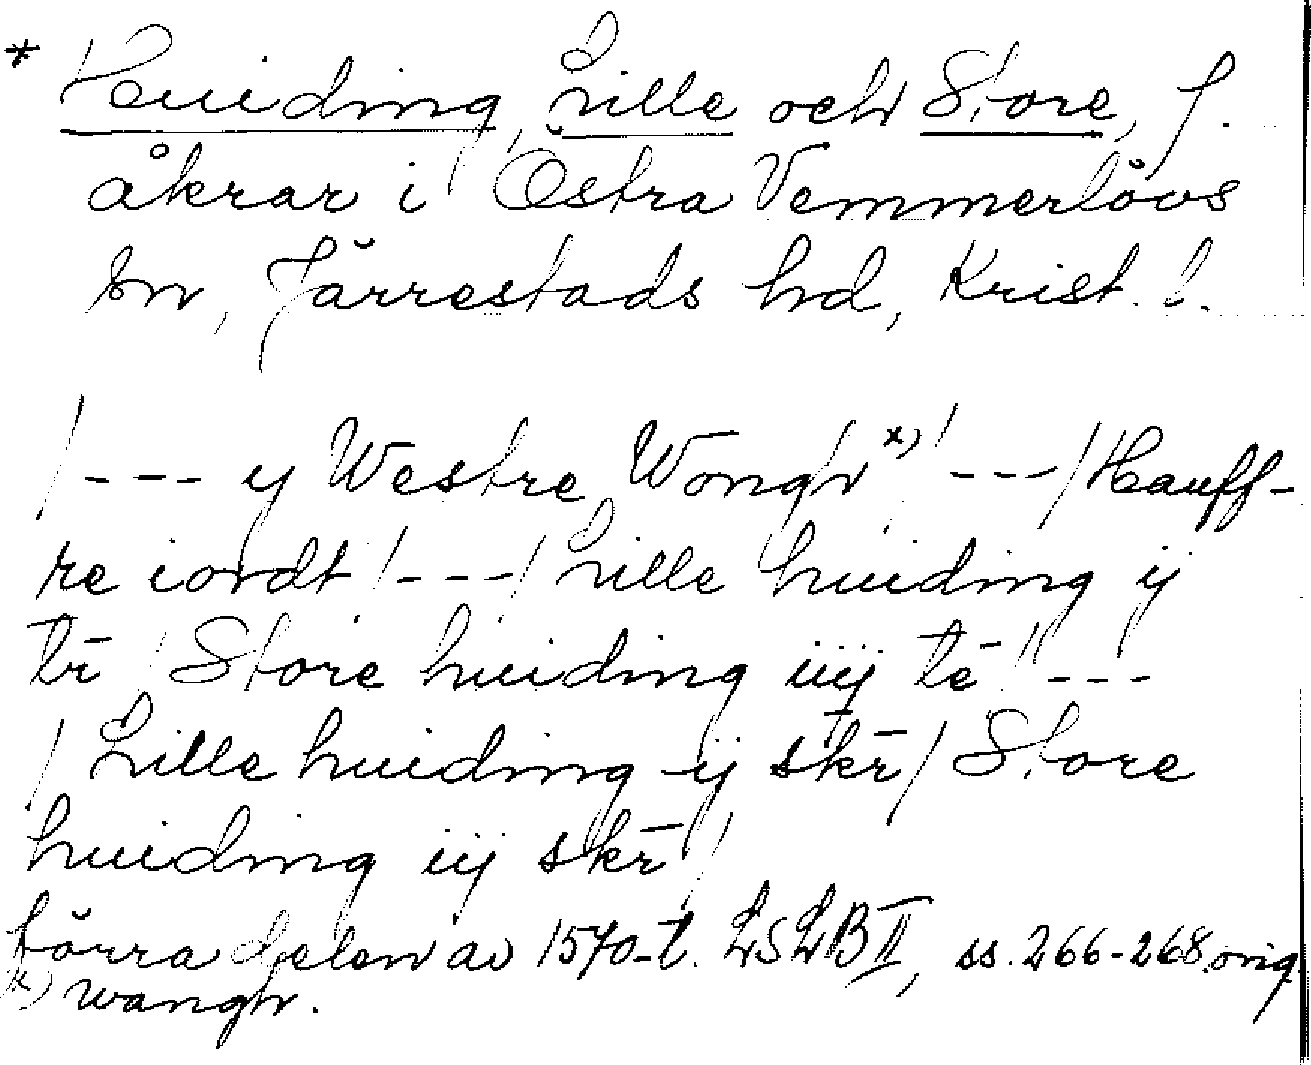 * Huiding, Lille och Store, f.
åkrar i Östra Vemmerlövs
sn, Järrestads hd, Krist. l.
/--- y Westre Wongh *) / ---/ Hauff-
re iordt /---/ Lille huiding ij
tr̄ / Store huiding iiij tē // ---
/ Lille huiding ij skr̄ / Store
huiding iij skr̄ /
förra delen av 1570-t. LSLB II, ss. 266-268, orig.
*) wangh.